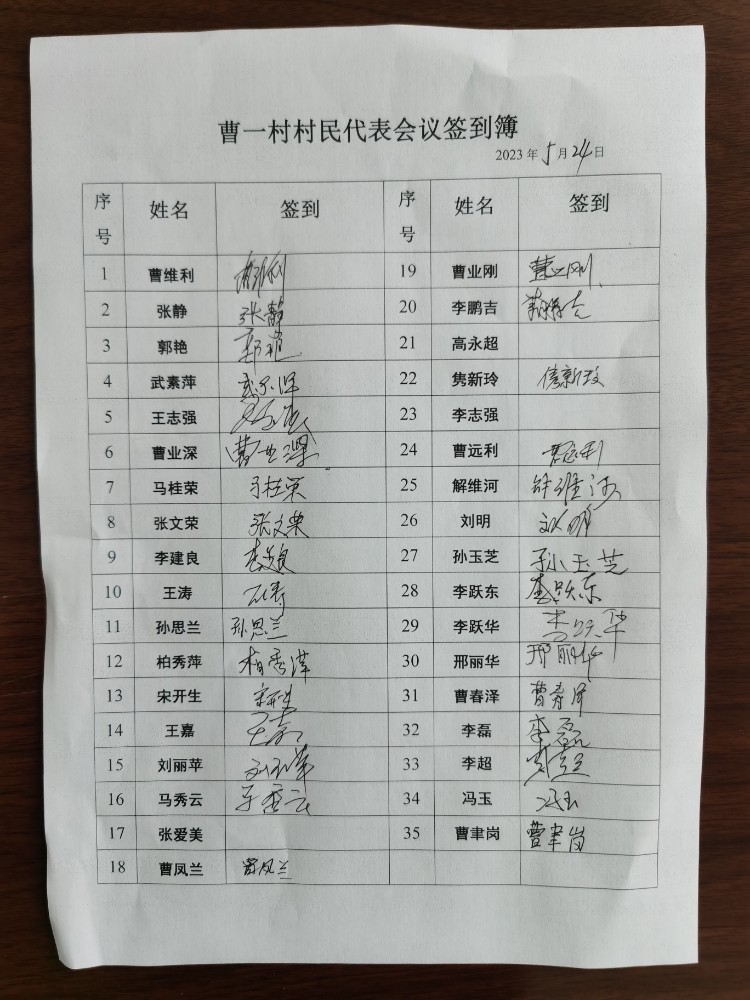 曹一村村民代表会议签到簿
2023 年 5 月 24 日
序号 姓名 签到 序号 姓名 签到
1 曹维利 曹维利 19 曹业刚 曹业刚
2 张静 张静 20 李鹏吉
3 郭艳 郭艳 21 高永超
4 武素萍 22 隽新玲
5 王志强 23 李志强
6 曹业深 曹业深 24 曹远利 曹远利
7 马桂荣 马桂荣 25 解维河 解维河
8 张文荣 张文荣 26 刘明 刘明
9 李建良 李建良 27 孙玉芝 孙玉芝
10 王涛 王涛 28 李跃东 李跃东
11 孙思兰 孙思兰 29 李跃华 李跃华
12 柏秀萍 柏秀萍 30 邢丽华 邢丽华
13 宋开生 宋开生 31 曹春泽 曹春泽
14 王嘉 王嘉 32 李磊 李磊
15 刘丽苹 33 李超 李超
16 马秀云 马秀云 34 冯玉 冯玉
17 张爱美 35 曹聿岗 曹聿岗
18 曹凤兰 曹凤兰